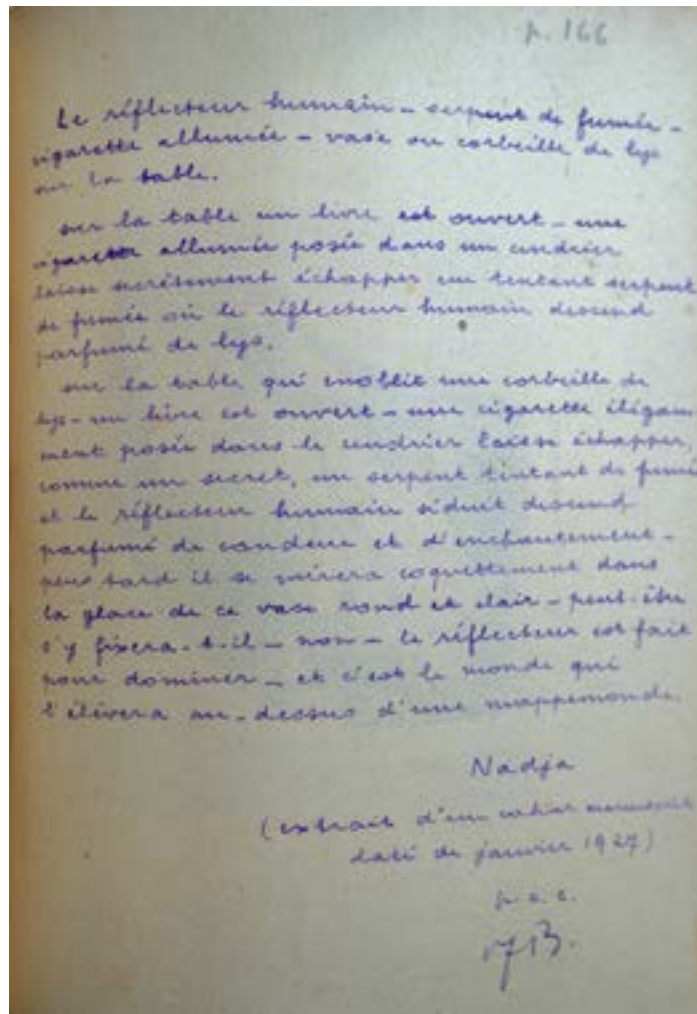 p. 166
Le réflecteur humain – serpent de fumée –
cigarette allumée – vase ou corbeille de lys
sur la table.
sur la table un livre est ouvert – une
cigarette allumée posée dans un cendrier
laisse secrètement échapper un tentant serpent
de fumée où le réflecteur humain descend
parfumé de lys.
sur la table qui ennoblit une corbeille de
lys – un livre est ouvert – une cigarette élégam
ment posée dans le cendrier laisse échapper,
comme un secret, un serpent tentant de fumée
et le réflecteur humain séduit descend
parfumé de candeur et d'enchantement –
plus tard il se mirera coquettement dans
la glace de ce vase rond et clair – peut-être
s'y fixera-t-il – non – le réflecteur est fait
pour dominer – et c'est le monde qui
l'élèvera au-dessus d'une mappemonde.
Nadja
(extrait d'un cahier manuscrit
daté de janvier 1927)
p. c. c.
AB.